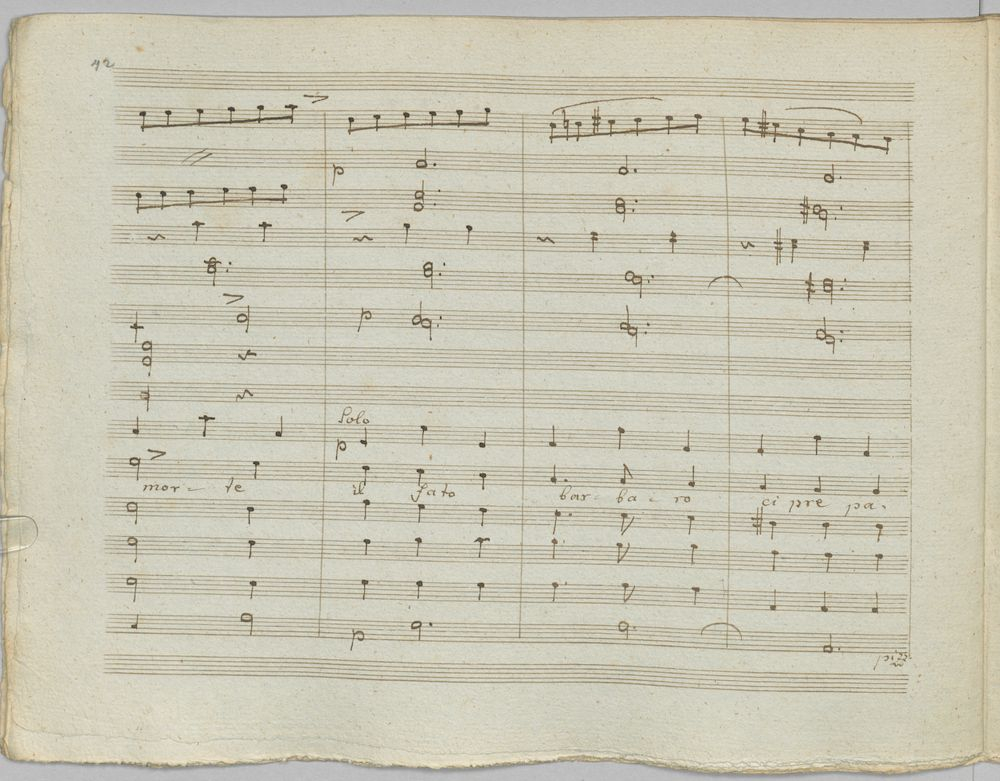 42
p
p
Solo
p
mor - te il fato bar - ba - ro ci pre pa.
p
pizz